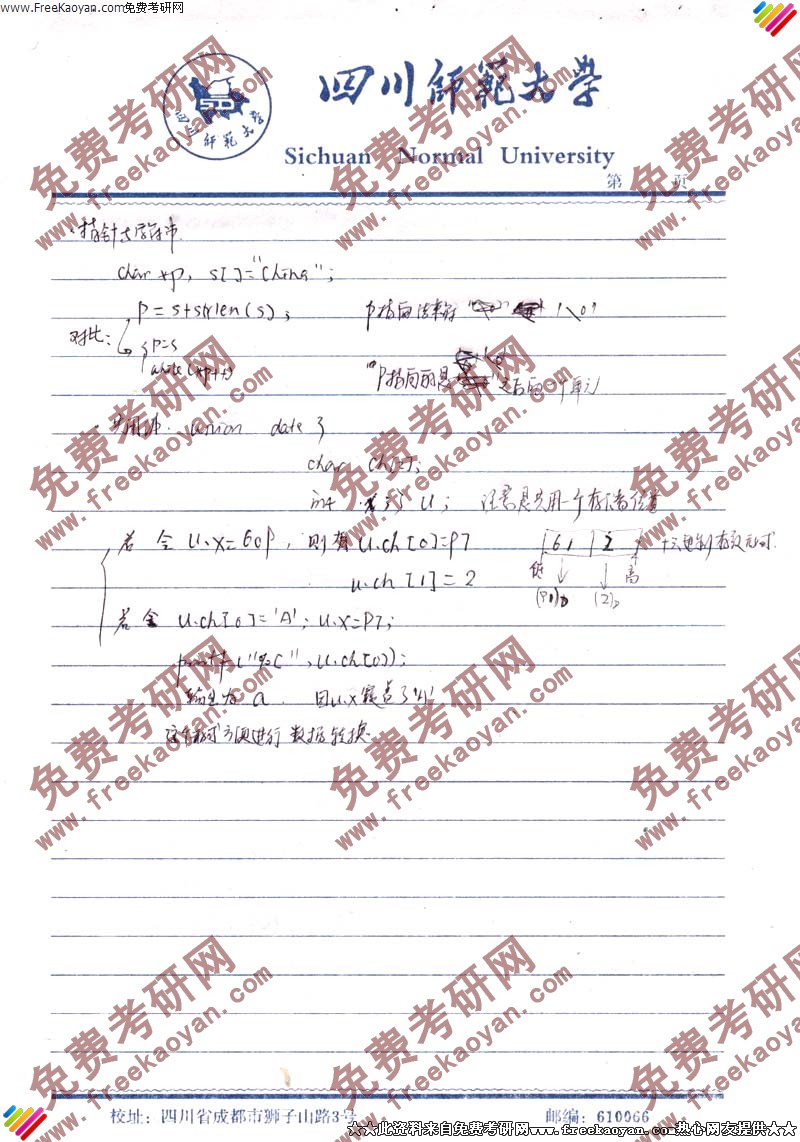 www.FreeKaoyan.com免费考研网
四川师范大学
四川師範大學
Sichuan Normal University
第 页
·指针与字符串
char *p, s[]="China";
p=s+strlen(s); p指向结束符 '\0'
对比: {p=s
while(*p++) p指向的是 之后的一个单元
·共用体. union date {
char ch[2];
int x;} u; 注意是共用一个存储位置
若令 u.x=609, 则有 u.ch[0]=97 61 2 十六进制存放形式
u.ch[1]=2 低 高
(97)D (2)D
若令 u.ch[0]='A'; u.x=97;
printf("%c", u.ch[0]);
输出为 a. 因u.x覆盖了'A'
方便进行数据转换
免费考研网
www.freekaoyan.com
校址: 四川省成都市狮子山路3号 邮编: 610066
★★此资料来自免费考研网www.freekaoyan.com热心网友提供★★